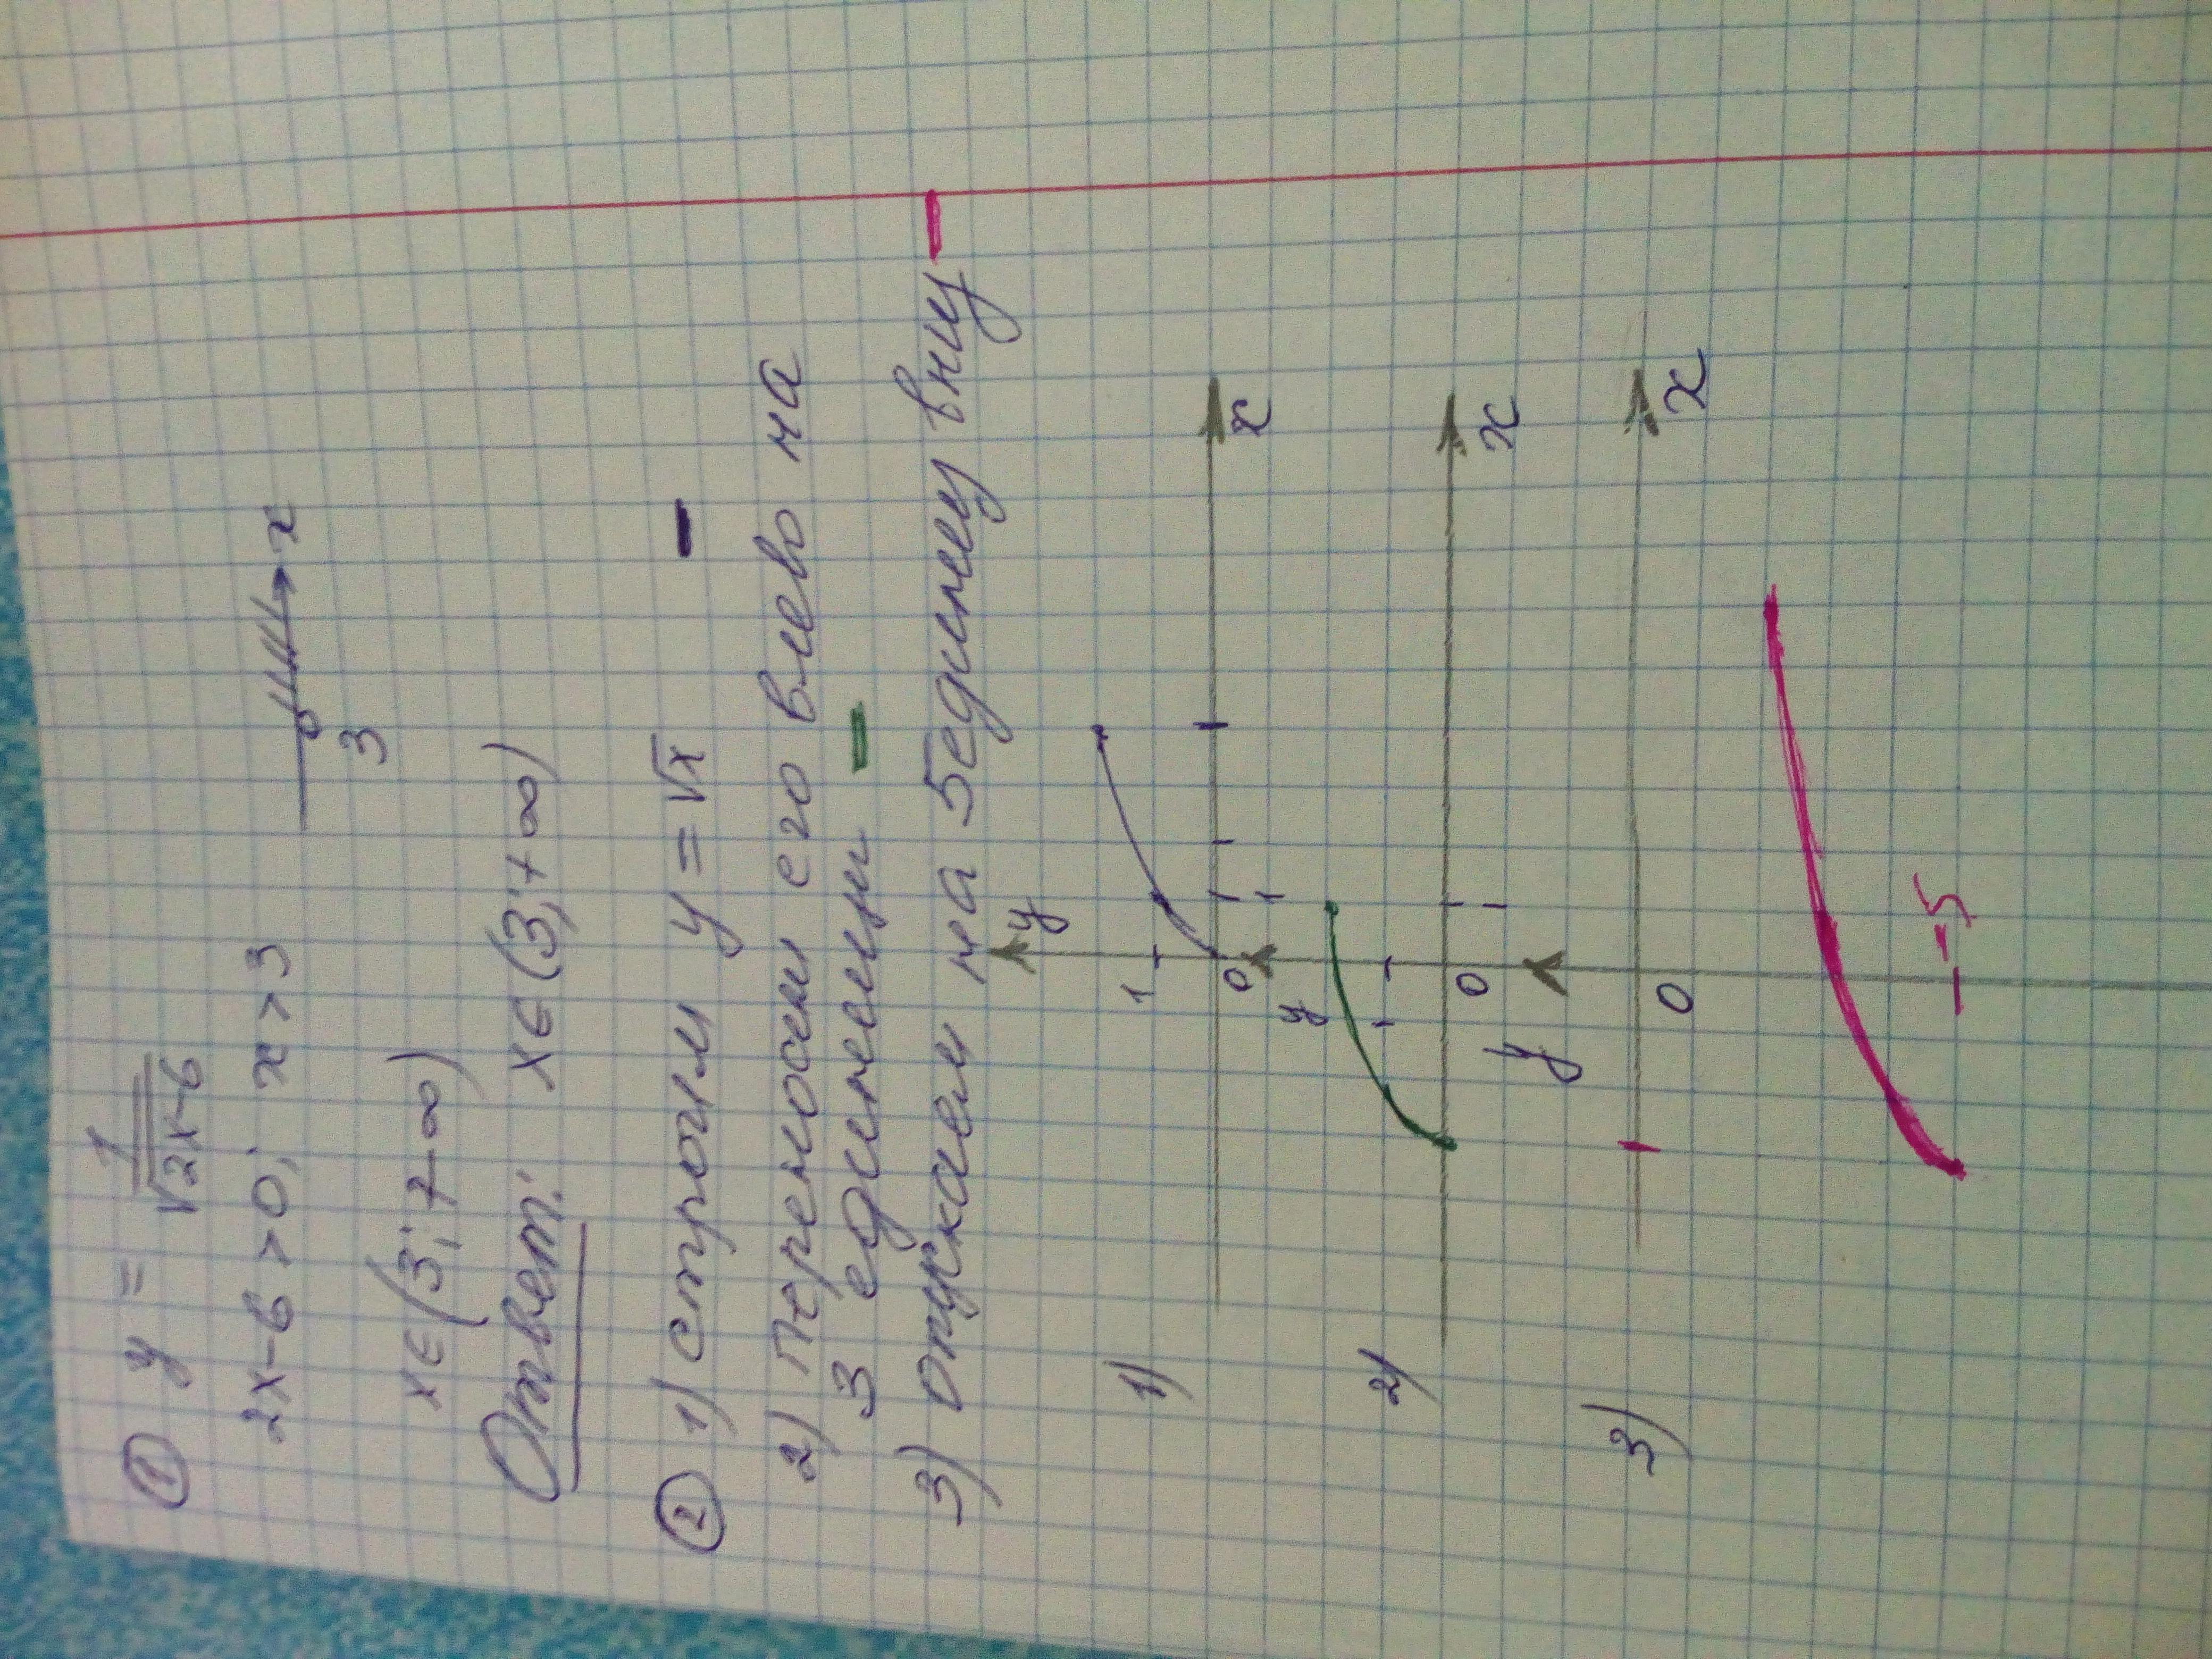 ① y = 1/√2x-6
2x-6>0; x>3
3 x
x∈(3;+∞)
Ответ: x∈(3;+∞)
② 1) строим y=√x
2) переносим его влево на
3 единицы
3) опускаем на 5 единиц вниз
1) y
1
0 x
2) y
0 x
3) y
0 x
-5